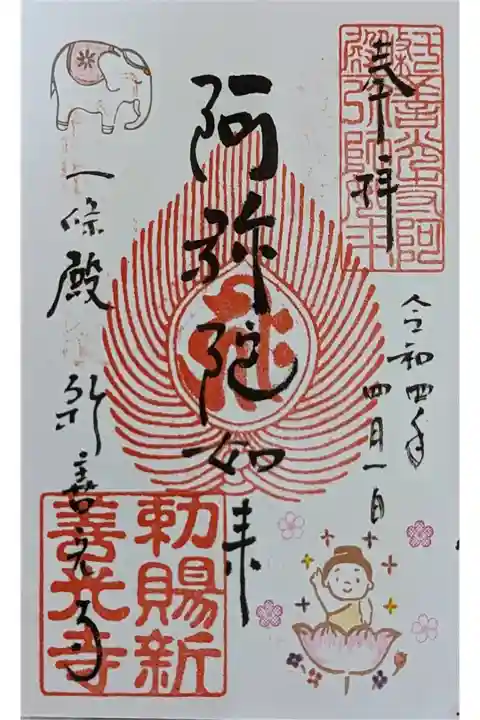 奉拝
令和四年
四月一日
阿弥陀如来
一條殿 新善光寺
勅賜新
善光寺